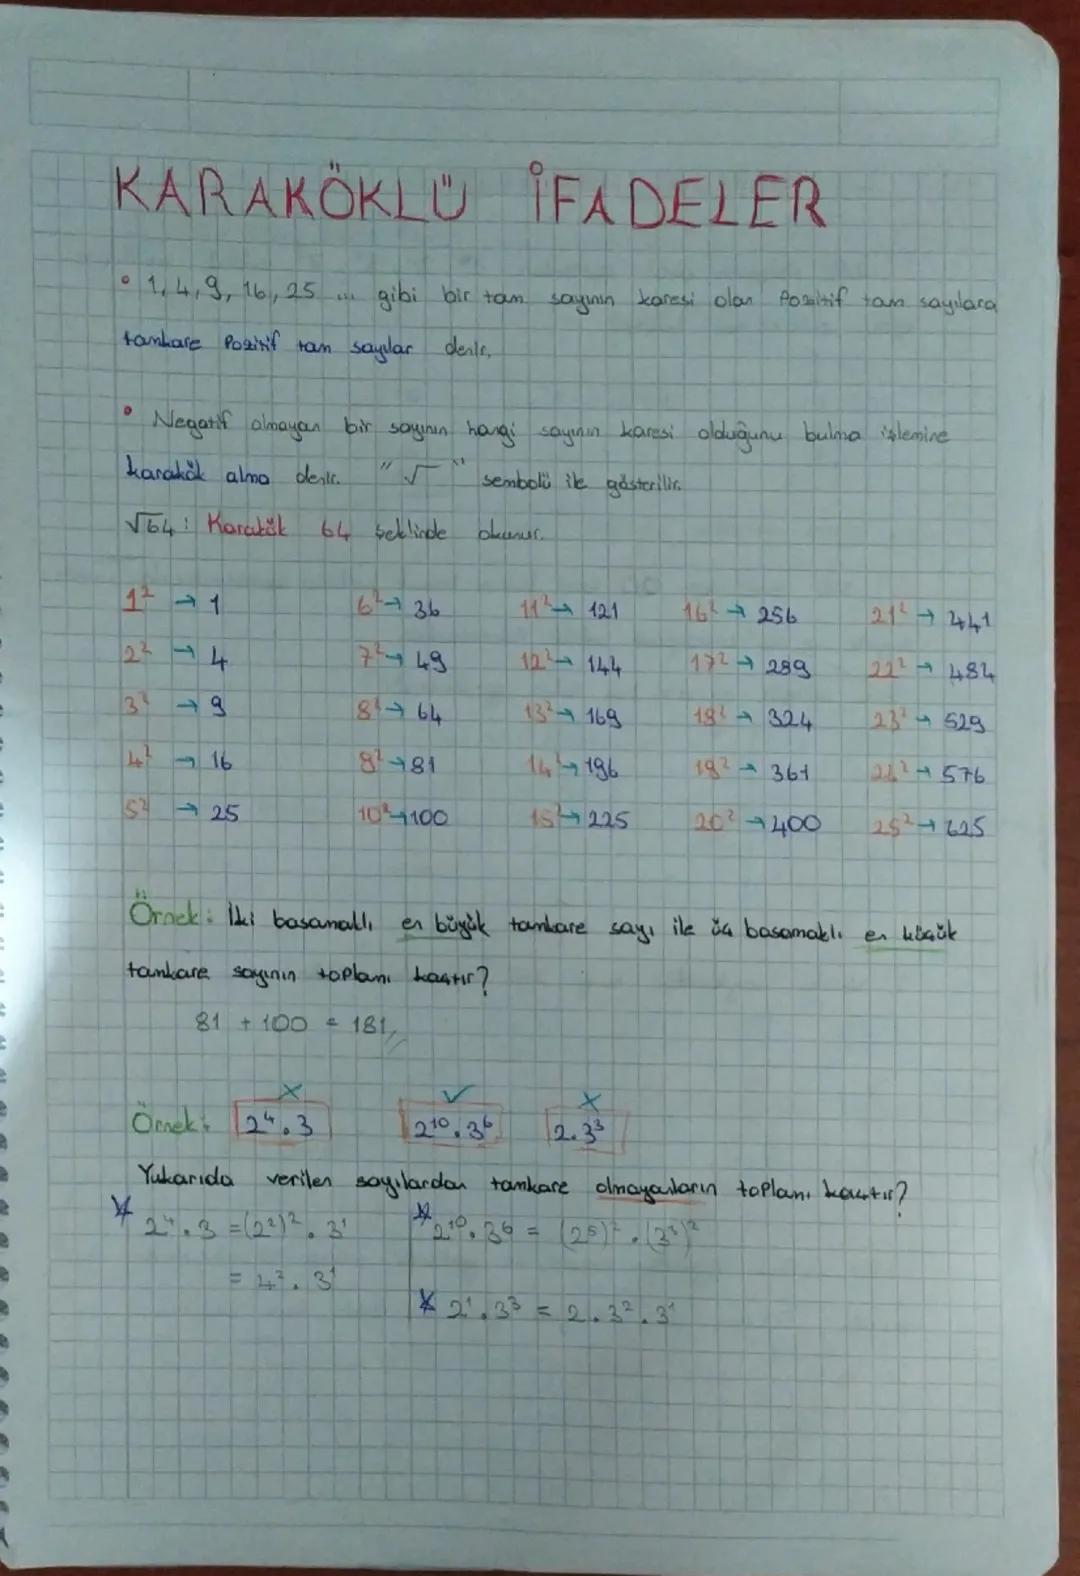 KARAKÖKLÜ İFADELER
• 1, 4, 9, 16, 25 ... gibi bir tam sayının karesi olan Pozitif tam sayılara
tamkare Pozitif tam sayılar denir.
• Negatif olmayan bir sayının hangi sayının karesi olduğunu bulma işlemine
karakök alma denir. "√" sembolü ile gösterilir.
√64 : Karakök 64 şeklinde okunur.
1² → 1 6² → 36 11² → 121 16² → 256 21² → 441
2² → 4 7² → 49 12² → 144 17² → 289 22² → 484
3² → 9 8² → 64 13² → 169 18² → 324 23² → 529
4² → 16 9² → 81 14² → 196 19² → 361 24² → 576
5² → 25 10² → 100 15² → 225 20² → 400 25² → 625
Örnek: İki basamaklı en büyük tamkare sayı ile üç basamaklı en küçük
tamkare sayının toplamı kaçtır?
81 + 100 = 181
x ✓ x
Örnek: 2⁴.3 2¹⁰.3⁶ 2.3³
Yukarıda verilen sayılardan tamkare olmayanların toplamı kaçtır?
* 2⁴.3 = (2²)².3¹ * 2¹⁰.3⁶ = (2⁵)².(3³)²
= 4².3¹
* 2¹.3³ = 2.3².3¹